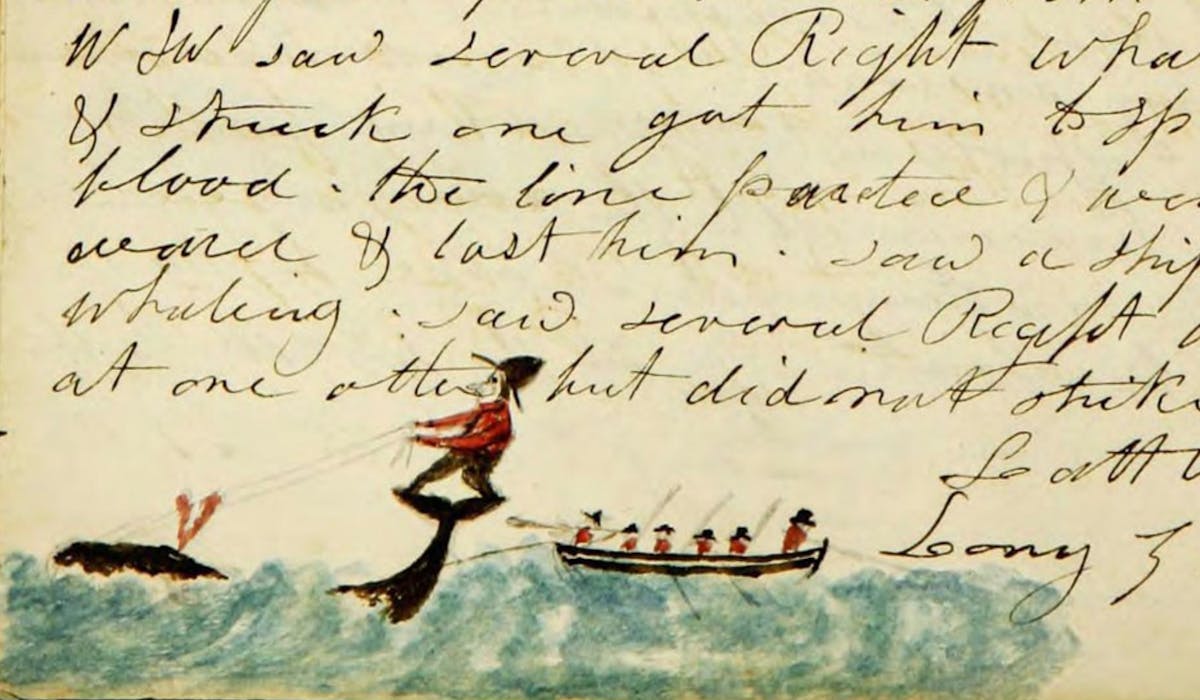 W S W saw several Right wha
& struck one got him to sp
blood . the line parted &
& lost him . saw a ship
whaling . saw several Right
at one but did not strike
Latt
Long